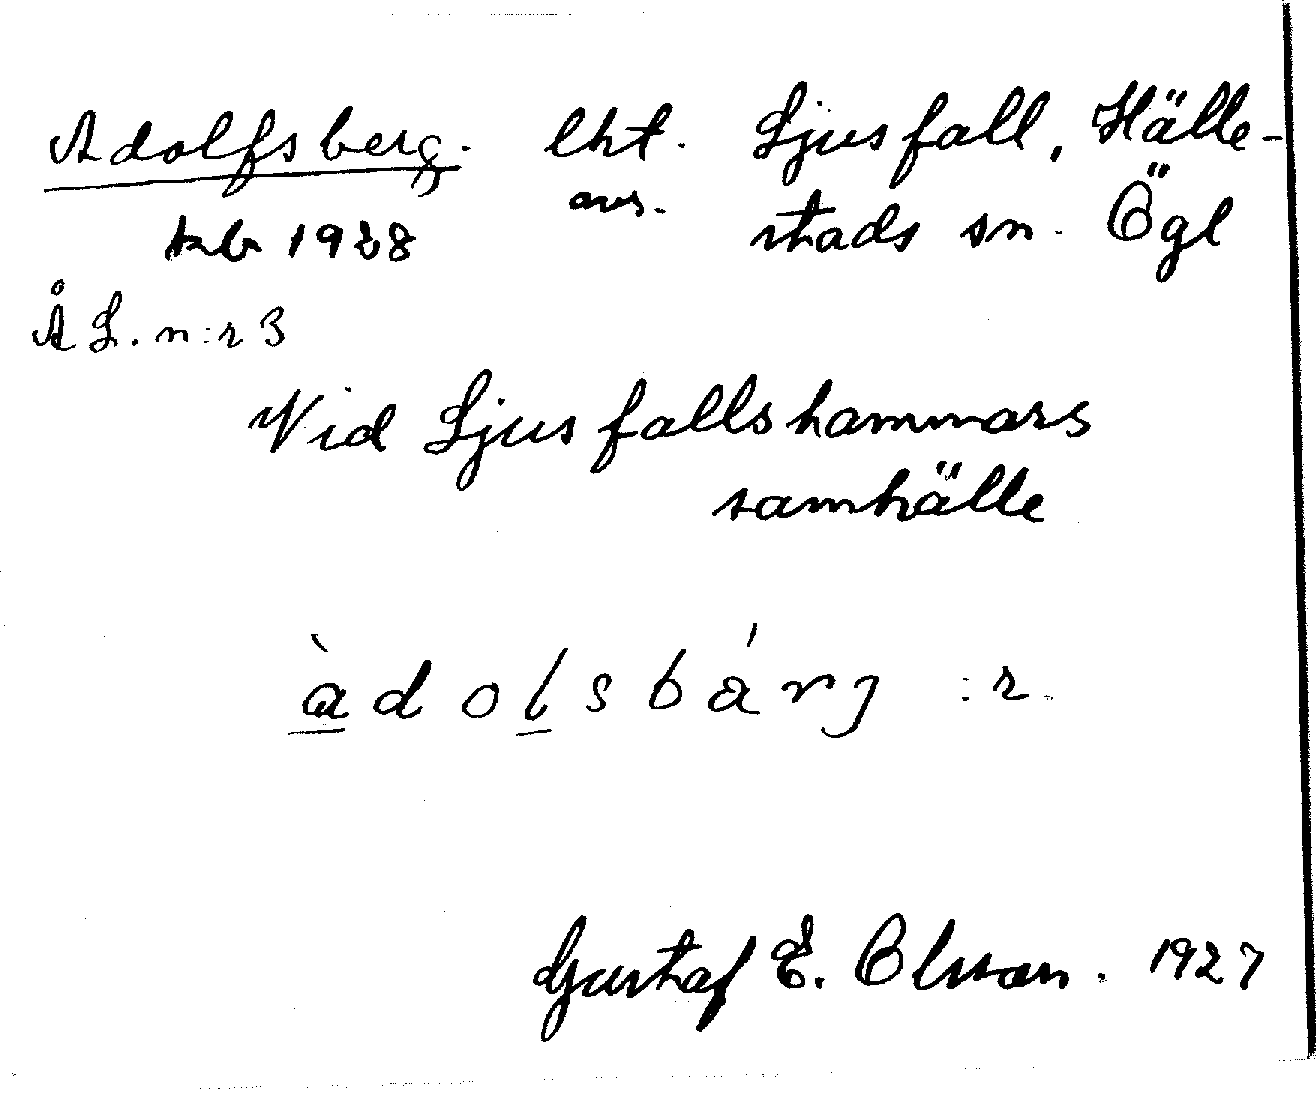 Adolfsberg. lht. Ljusfall, Hälle-
avs. stads sn. Ögl
1928
ÅL. n:r 3
Vid Ljusfallshammars
samhälle
àdolsbárj :r.
Gustaf E. Olsson. 1927